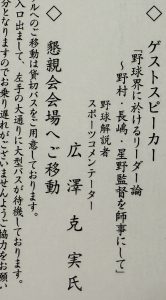 ◇ ゲストスピーカー
「野球界に於けるリーダー論
～野村・長嶋・星野監督を師事にして」
野球解説者
スポーツコメンテーター
広澤克実氏
◇ 懇親会会場へご移動
ルへのご移動は貸切バスをご用意しております。
入口出まして、左手の大通りに大型バスが待機しております。
分となりますのでお乗り遅れがございませんようご協力をお願い